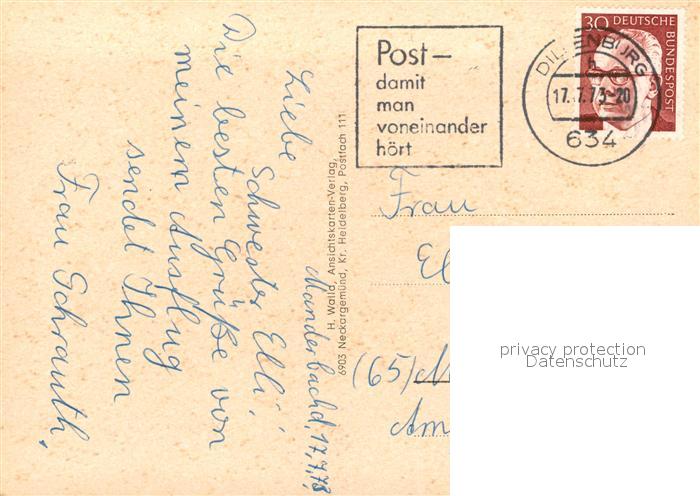 Manderbach d, 17.7.73
Liebe
Schwester Elli!
Die besten Grüße von
meinem Ausflug
sendet Ihnen
Frau Schrauth.
H. Walld, Ansichtskarten-Verlag,
6903 Neckargemünd, Kr. Heidelberg, Postfach 111
Post –
damit
man
voneinander
hört
30 DEUTSCHE
BUNDESPOST
DILLENBURG
h
17.7.73-20
634
Frau
El
(65)
Am
privacy protection
Datenschutz